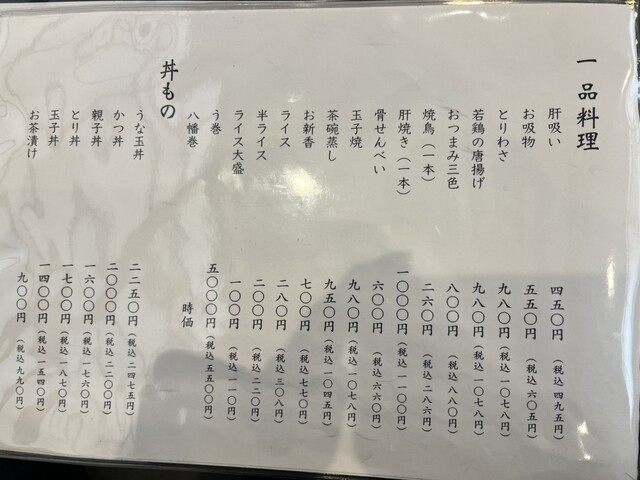 一品料理
肝吸い 四五〇円(税込 四九五円)
お吸物 五五〇円(税込 六〇五円)
とりわさ 九八〇円(税込 一〇七八円)
若鶏の唐揚げ 九八〇円(税込 一〇七八円)
おつまみ三色 八〇〇円(税込 八八〇円)
焼鳥(一本) 二六〇円(税込 二八六円)
肝焼き(一本) 一〇〇〇円(税込 一一〇〇円)
骨せんべい 六〇〇円(税込 六六〇円)
玉子焼 九八〇円(税込 一〇七八円)
茶碗蒸し 九五〇円(税込 一〇四五円)
お新香 七〇〇円(税込 七七〇円)
ライス 二八〇円(税込 三〇八円)
半ライス 二〇〇円(税込 二二〇円)
ライス大盛 一〇〇円(税込 一一〇円)
う巻 五〇〇〇円(税込 五五〇〇円)
八幡巻 時価
丼もの
うな玉丼 二二五〇円(税込 二四七五円)
かつ丼 二〇〇〇円(税込 二二〇〇円)
親子丼 一六〇〇円(税込 一七六〇円)
とり丼 一七〇〇円(税込 一八七〇円)
玉子丼 一四〇〇円(税込 一五四〇円)
お茶漬け 九〇〇円(税込 九九〇円)